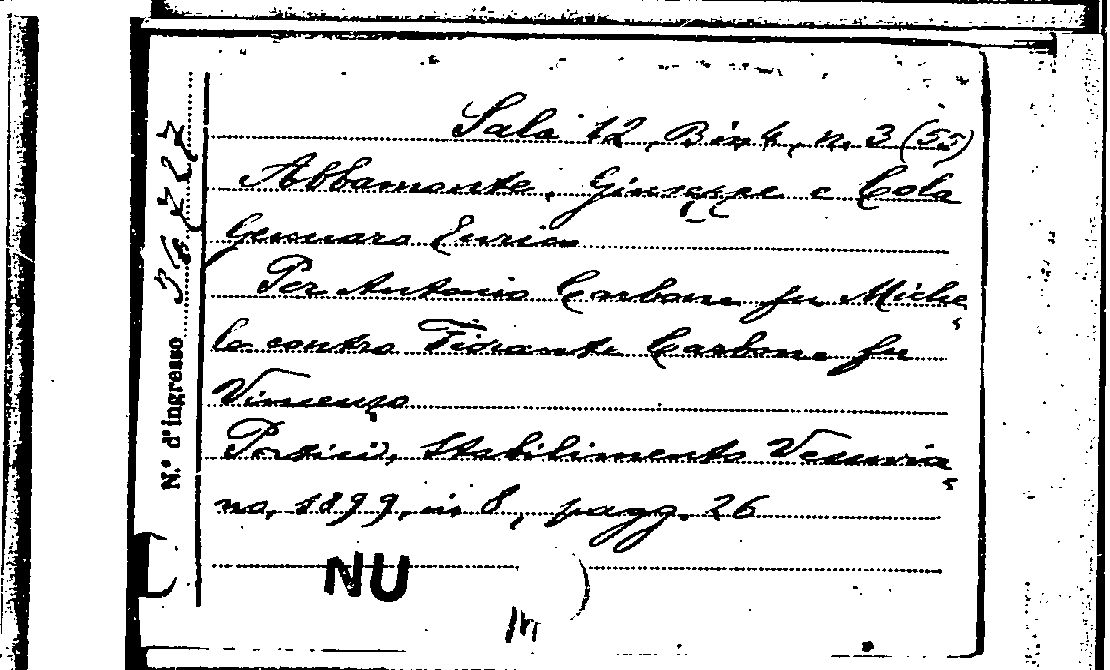 Sala 12, Bin 4, n. 3 (55)
Abbamonte, Giuseppe e Cola
Gennaro Enrico
Per Antonio Carbone fu Miche
le contro Fiorante Carbone fu
Vincenzo
Portici, Stabilimento Vesuvia
no, 1899, in 8, pagg. 26
NU
N.° d'ingresso